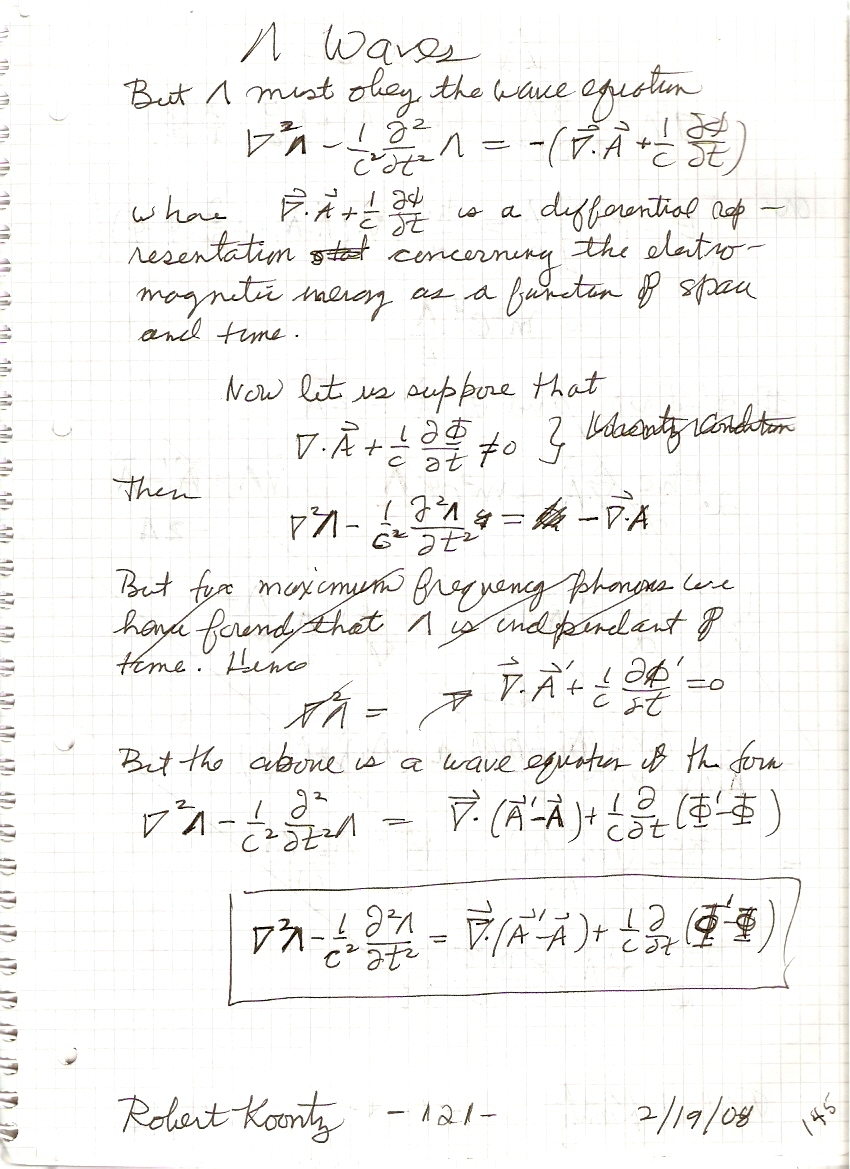 Λ Waves
But Λ must obey the wave equation
∇²Λ - 1/c² ∂²/∂t² Λ = -(∇⃗·A⃗ + 1/c ∂ϕ/∂t)
where ∇⃗·A⃗ + 1/c ∂ϕ/∂t is a differential rep-
resentation concerning the electro-
magnetic energy as a function of space
and time.
Now let us suppose that
∇·A⃗ + 1/c ∂Φ/∂t ≠ 0 } Lorentz Condition
Then
∇²Λ - 1/c² ∂²Λ/∂t² = -∇⃗·A
But for maximum frequency phonons we
have found that Λ is independant of
time. Hence
∇²Λ = ∇⃗·A⃗' + 1/c ∂ϕ'/∂t = 0
But the above is a wave equation of the form
∇²Λ - 1/c² ∂²/∂t² Λ = ∇⃗·(A⃗'-A⃗) + 1/c ∂/∂t (Φ'-Φ)
∇²Λ - 1/c² ∂²Λ/∂t² = ∇⃗·(A⃗'-A⃗) + 1/c ∂/∂t (Φ'-Φ)
Robert Koontz -121- 2/19/08 145